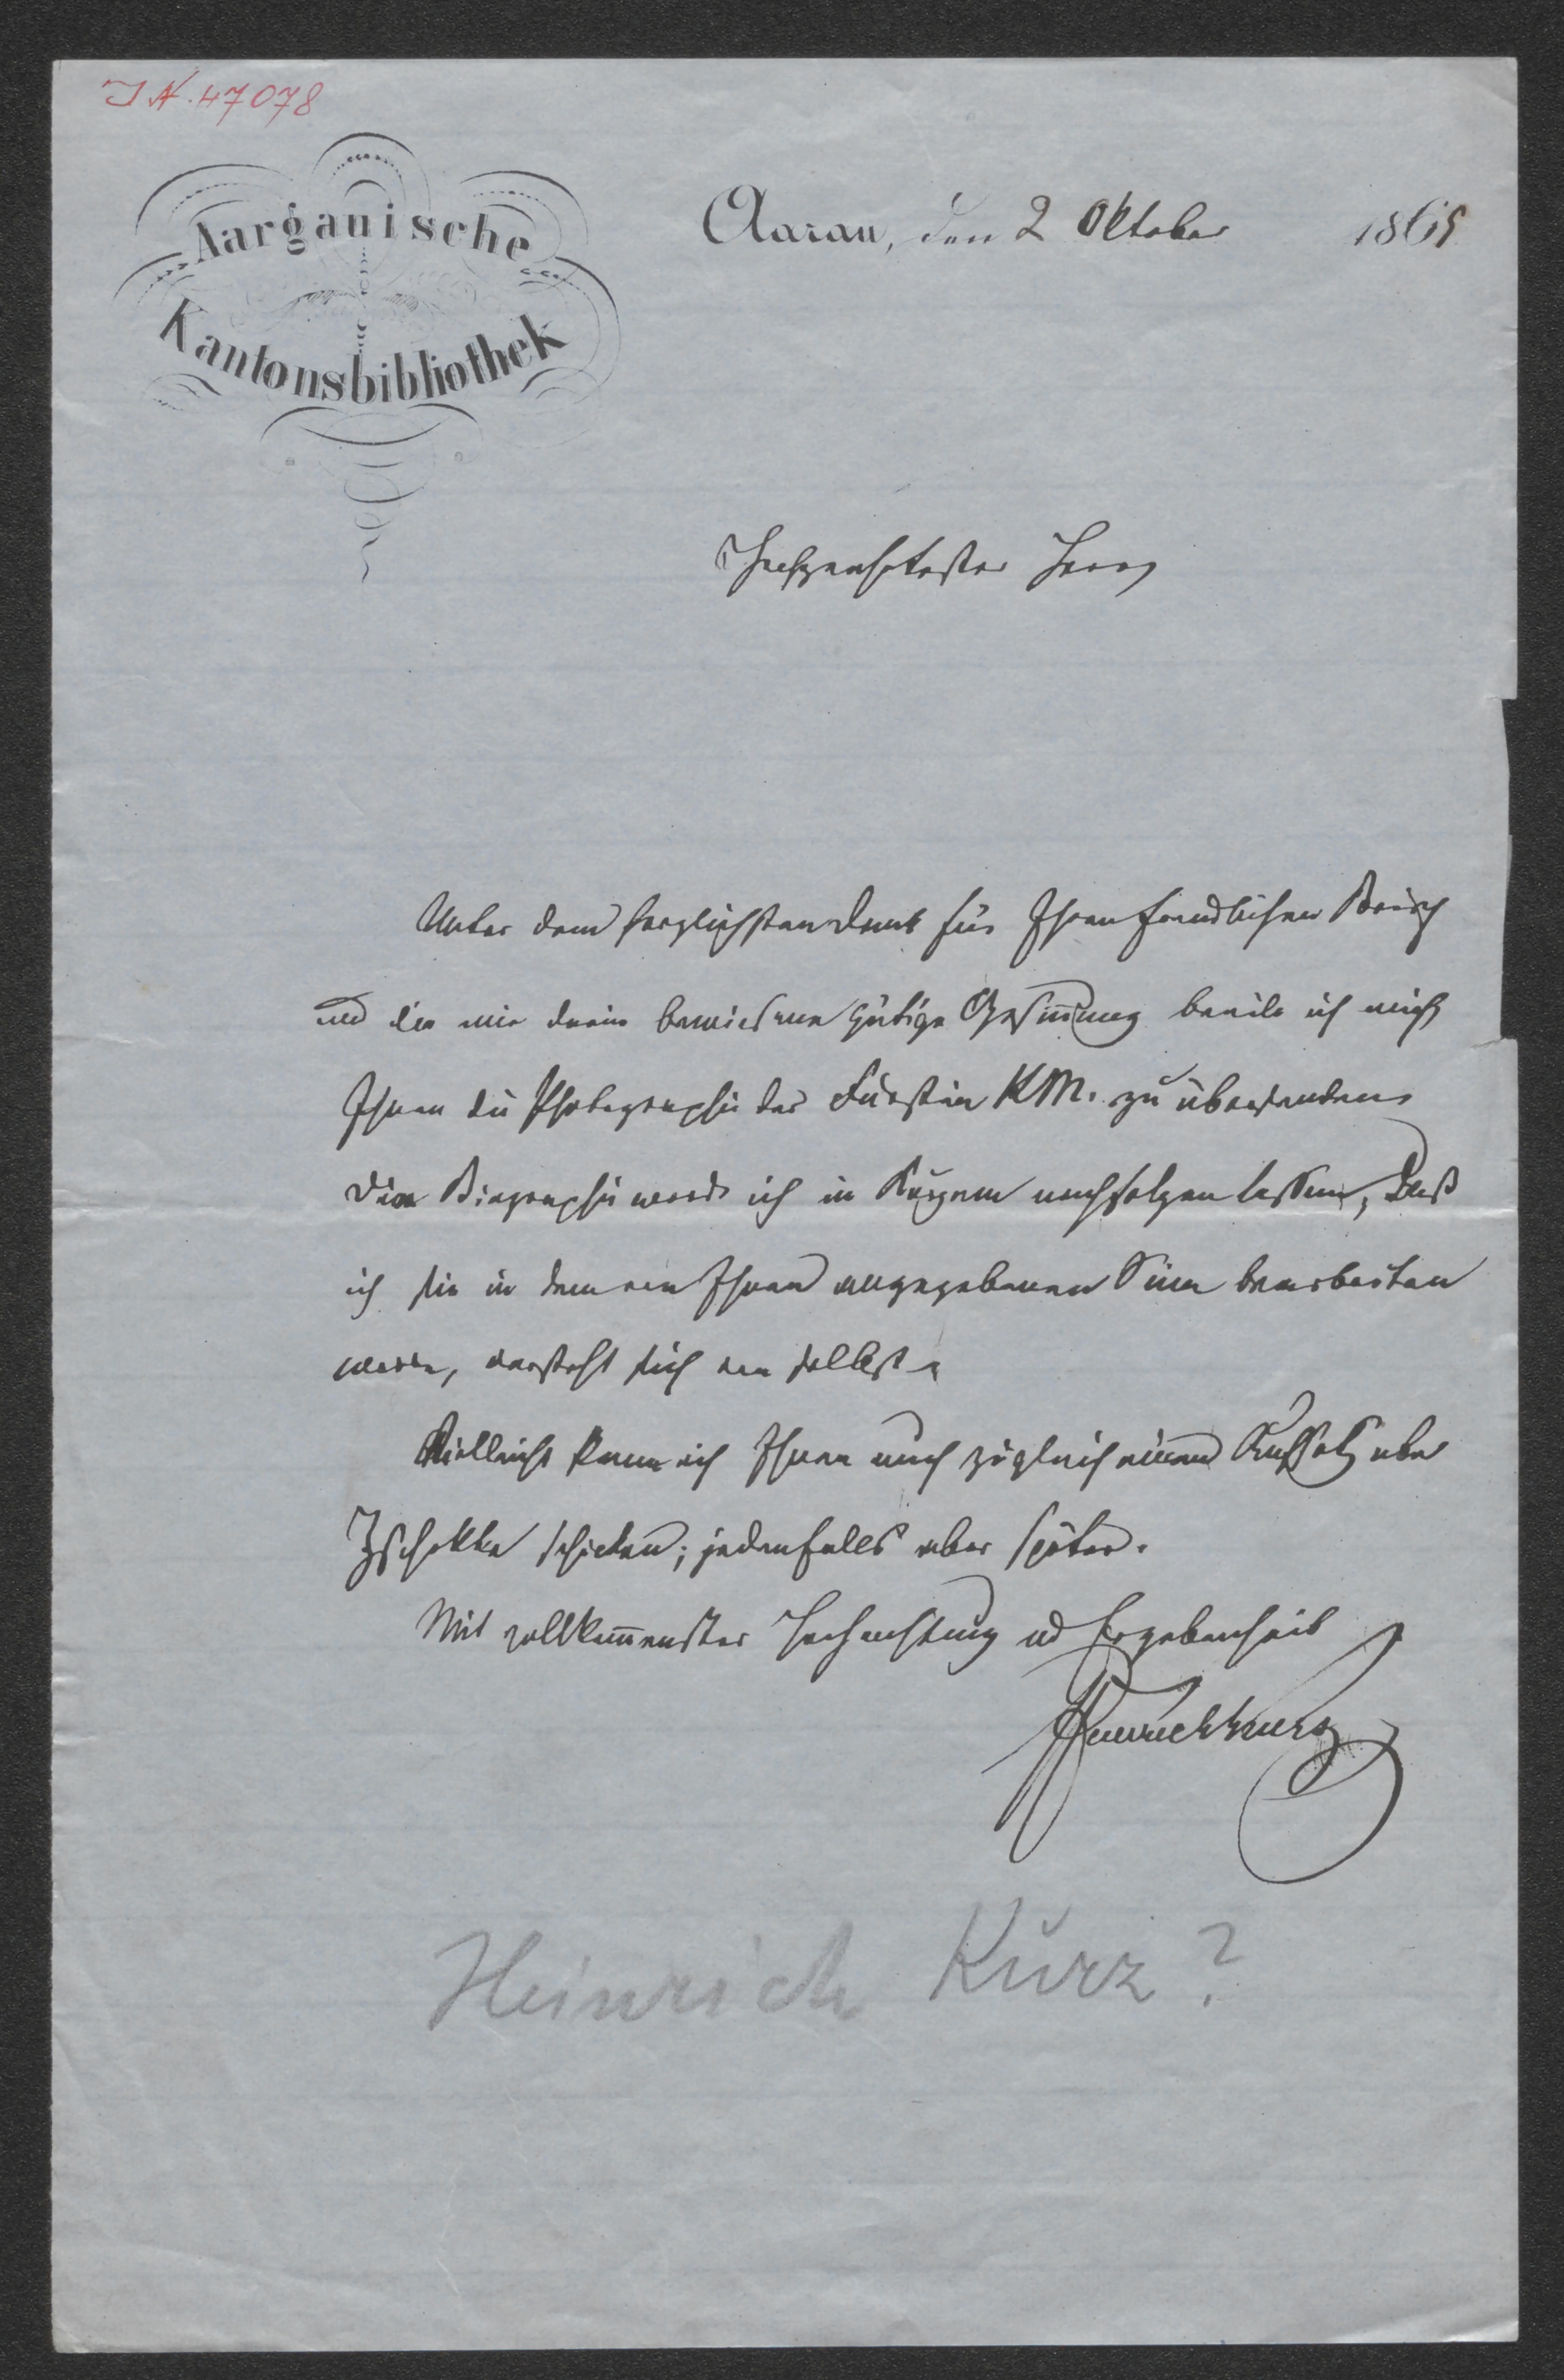 I.N. 47078
Aargauische
Kantonsbibliothek
Aarau, den 2 Oktober 1865
Hochgeachteter Herr
Unter dem herzlichsten Dank für Ihren freundlichen Brief
und die mir darin bewiesene gütige Gesin̄ung beeile ich mich
Ihnen die Photographie der Fürstin KM. zu übersenden.
Die Biographie werde ich in Kurzem nachfolgen lassen; daß
ich sie in dem von Ihnen angegebenen Sinn bearbeiten
werde, versteht sich von selbst.
Vielleicht kann ich Ihnen auch zugleich einen Aufsatz über
Zschokke schicken; jedenfalls aber später.
Mit vollkom̄enster Hochachtung ud Ergebenheit
Heinrich Kurz
Heinrich Kurz?